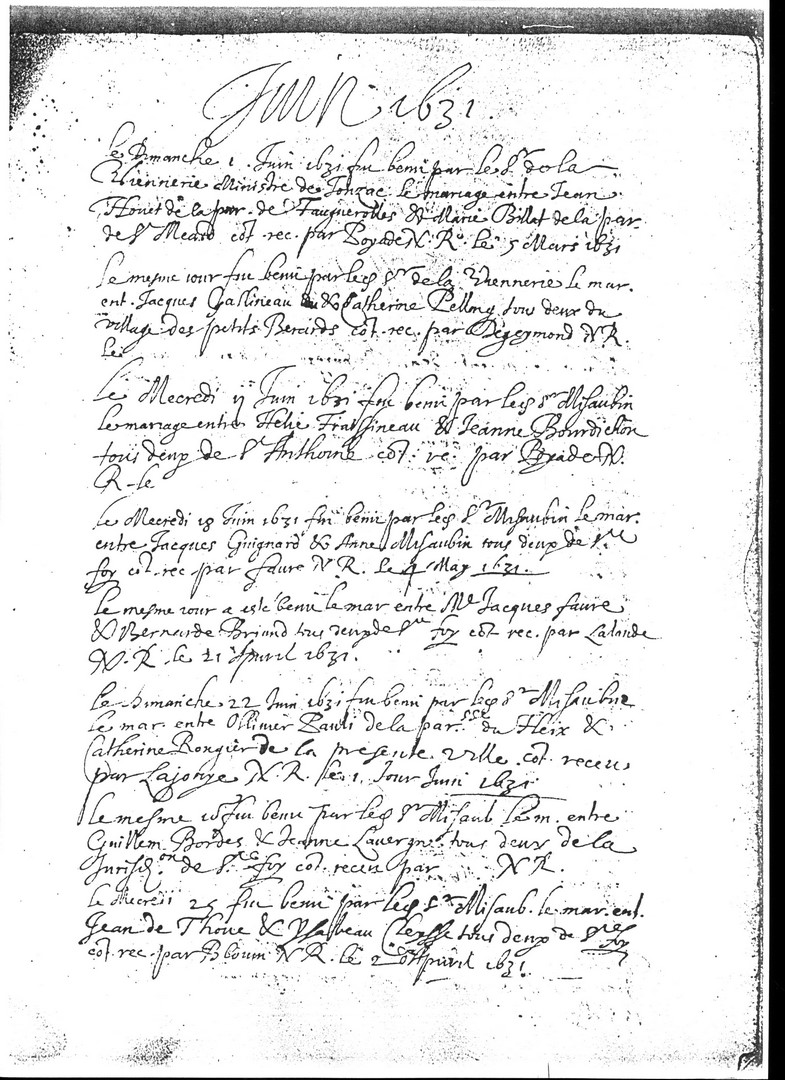 Juin 1631.
le Dimanche 1 Juin 1631 fut beni par le Sr de la
Viennerie Ministre de Jonzac le mariage entre Jean
Houet de la par. de Facquerolles & Marie Billot de la par.
de St Meard cot. rec. par Boyade N. Ro. le 5 Mars 1631
le mesme iour fut beni par led Sr de la Viennerie le mar.
ent. Jacques Gassineau & Catherine Pelling tous deux du
village des petits Berards cot. rec. par Degeymond N R.
le
Le Mecredi 11 Juin 1631 fut beni par led Sr Misaubin
le mariage entre Helie Fraissineau & Jeanne Bourdichon
tous deux de St Anthoine cot. re. par Boyade N.
R. le
le Mecredi 18 Juin 1631 fut beni par led Sr Misaubin le mar.
entre Jacques Guignard & Anne Misaubin tous deux de Ste
foy cot. rec par faure N R. le 4 May 1631.
le mesme iour a esté beni le mar entre Me Jacques faure
& Bernarde Briand tous deux de Ste foy cot. rec. par Lalande
N. R. le 21 Apvril 1631.
le Dimanche 22 Juin 1631 fut beni par led Sr Misaubin
le mar. entre Ollivier Pauli de la par. du Fleix &
Catherine Rougier de la presente Ville cot. receu
par Lajonye N. R. le 1. Jour Juin 1631
le mesme io. fut beni par led Sr Misaub. le m. entre
Guillem Bordes & Jeanne Lavergne tous deux de la
Jurisdon. de Ste foy cot. receu par N R.
le Mecredi 25 fut beni par led Sr Misaub. le mar. ent.
Jean de Thoue & Ysabeau tous deux de Ste foy
cot. rec. par Bbouin N R. le 20 Apvril 1631.